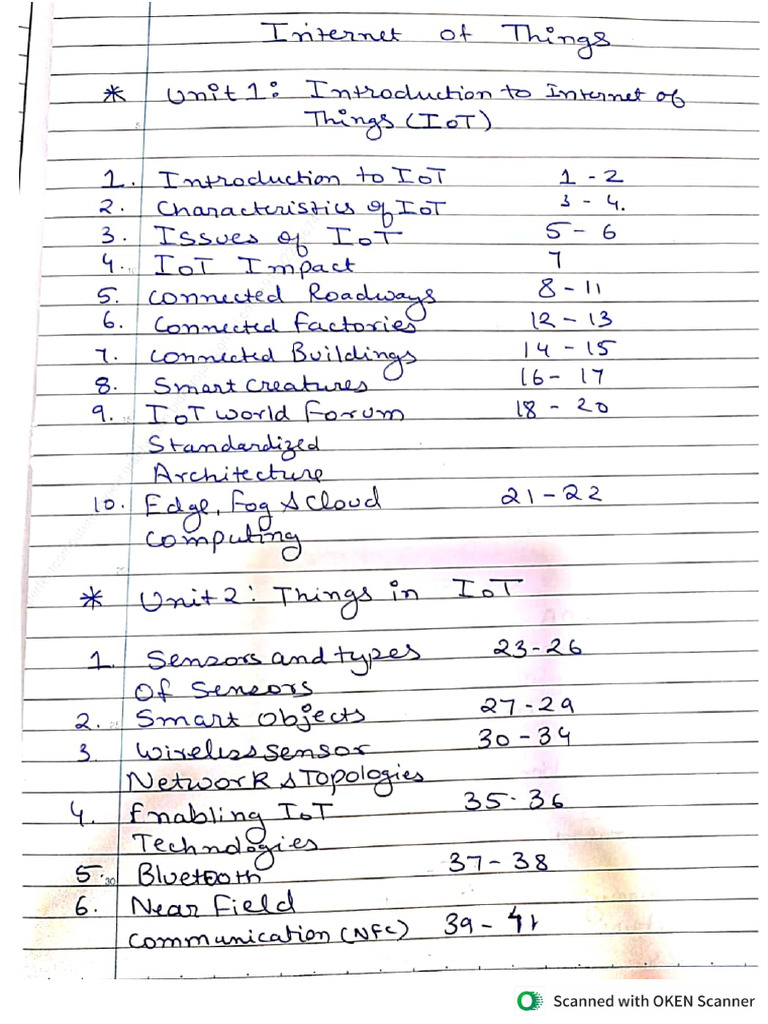 Internet of Things
* Unit 1: Introduction to Internet of
Things (IoT)
1. Introduction to IoT 1 - 2
2. Characteristics of IoT 3 - 4.
3. Issues of IoT 5 - 6
4. IoT Impact 7
5. Connected Roadways 8 - 11
6. Connected Factories 12 - 13
7. Connected Buildings 14 - 15
8. Smart Creatures 16 - 17
9. IoT World Forum 18 - 20
Standardized
Architecture
10. Edge, Fog & Cloud 21 - 22
Computing
* Unit 2: Things in IoT
1. Sensors and types 23 - 26
Of Sensors
2. Smart Objects 27 - 29
3. Wireless Sensor 30 - 34
Network & Topologies
4. Enabling IoT 35 - 36
Technologies
5. Bluetooth 37 - 38
6. Near Field
Communication (NFC) 39 - 41
Scanned with OKEN Scanner